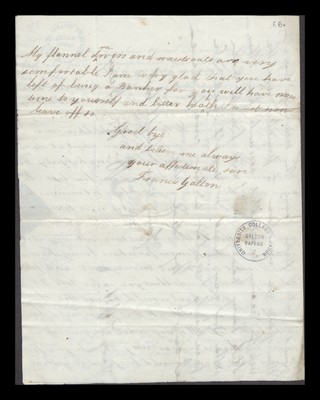 58.
My flannel Drōrs and waistcoats are very
comfortable I am very glad that you have
left of being a Banker for you will have more
time to yourself and better health
leave off so
Good bye
and believe me always
your affectionate son
Francis Galton
UNIVERSITY COLLEGE LONDON
GALTON
PAPERS